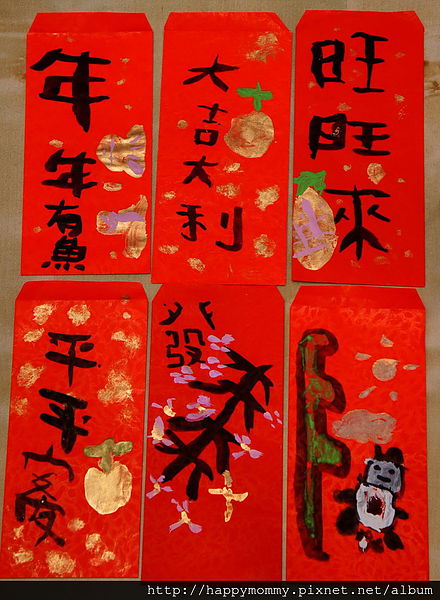 年年有魚
大吉大利
旺旺來
平平
發
http://happymommy.pixnet.net/album